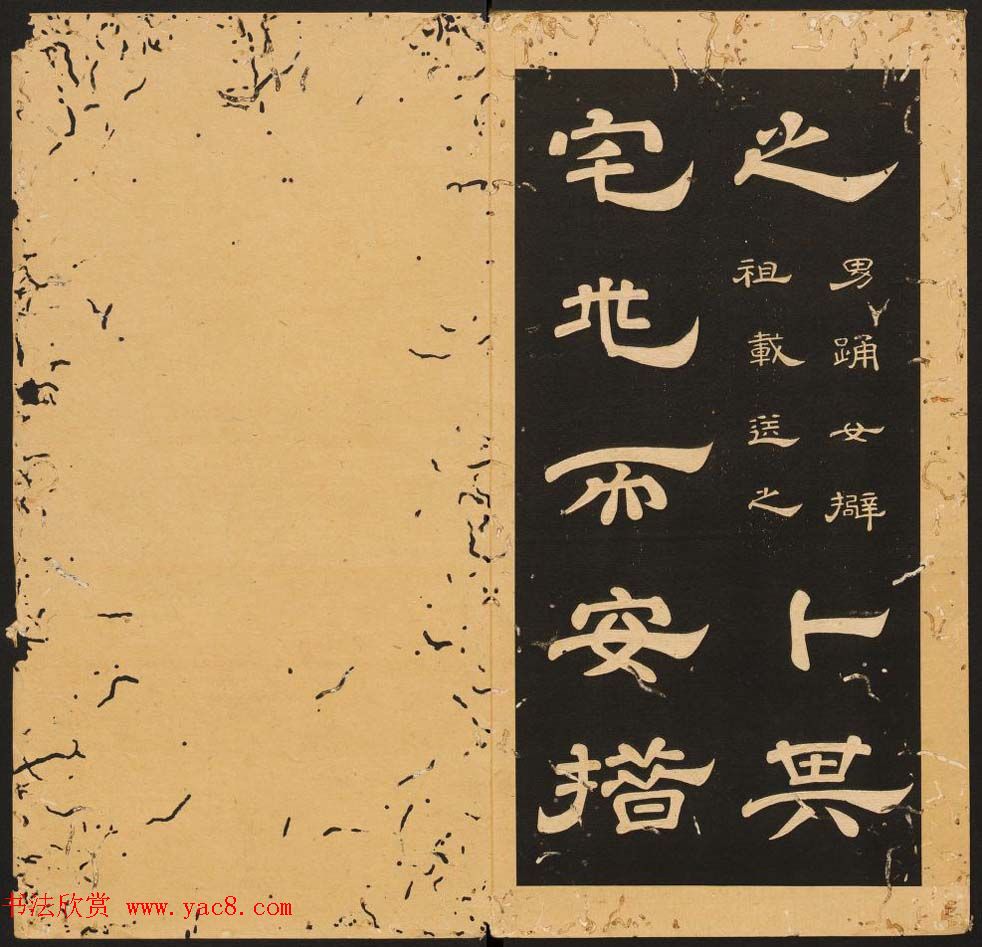 之
男踊女擗
祖載送之
卜其
宅兆而安措
书法欣赏 www.yac8.com